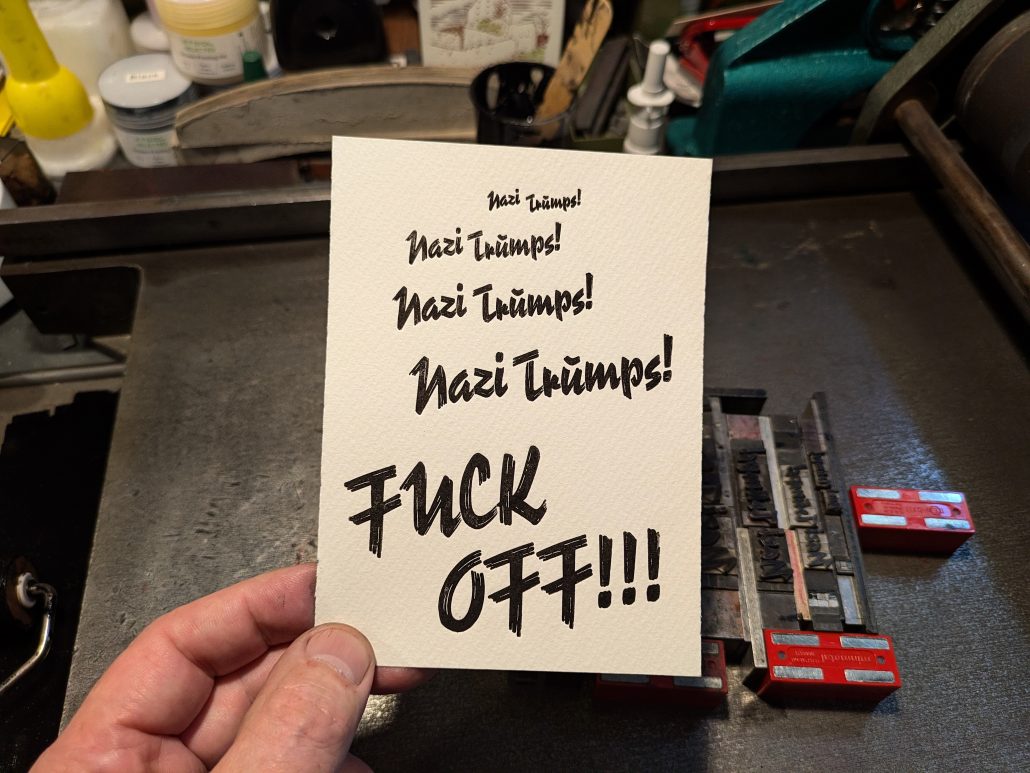 Black
Nazi Trŭmps!
Nazi Trŭmps!
Nazi Trŭmps!
Nazi Trŭmps!
FUCK
OFF!!!